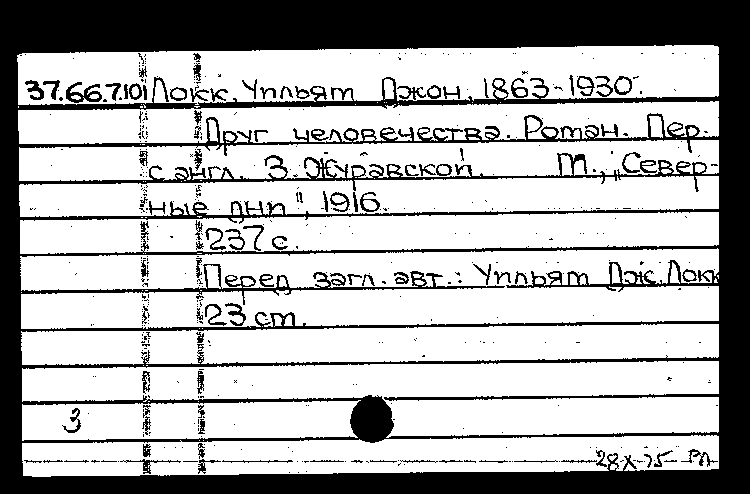 37.66.7.101 Локк, Уильям Джон, 1863-1930.
Друг человечества. Роман. Пер.
с англ. З. Журавской. М., "Север-
ные дни", 1916.
237 с.
Перед загл. авт.: Уильям Дж. Локк
23 см.
3
28-X-75